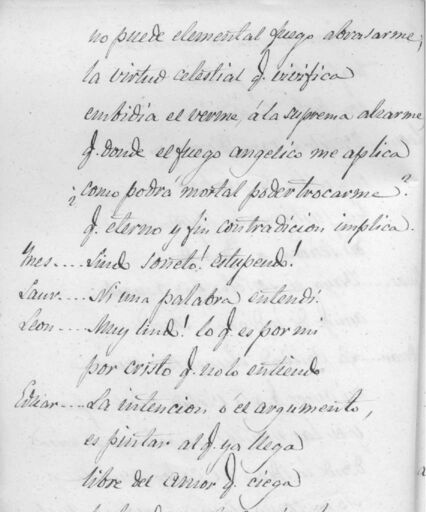 no puede elemental fuego abrasarme;
la virtud celestial q. vivifica
embidia el verme, á la suprema alzarme,
q. donde el fuego angelico me aplica
¿como podrá mortal poder trocarme?
q. eterno y fin contradicion implica.
Ines.... Lindo soneto! estupendo!
Laur... Ni una palabra entendí.
Leon... Muy lindo! lo q. es por mi
por cristo q. no lo entiendo
.... La intencion ó el argumento,
es pintar al q. ya llega
libre del amor q. ciega